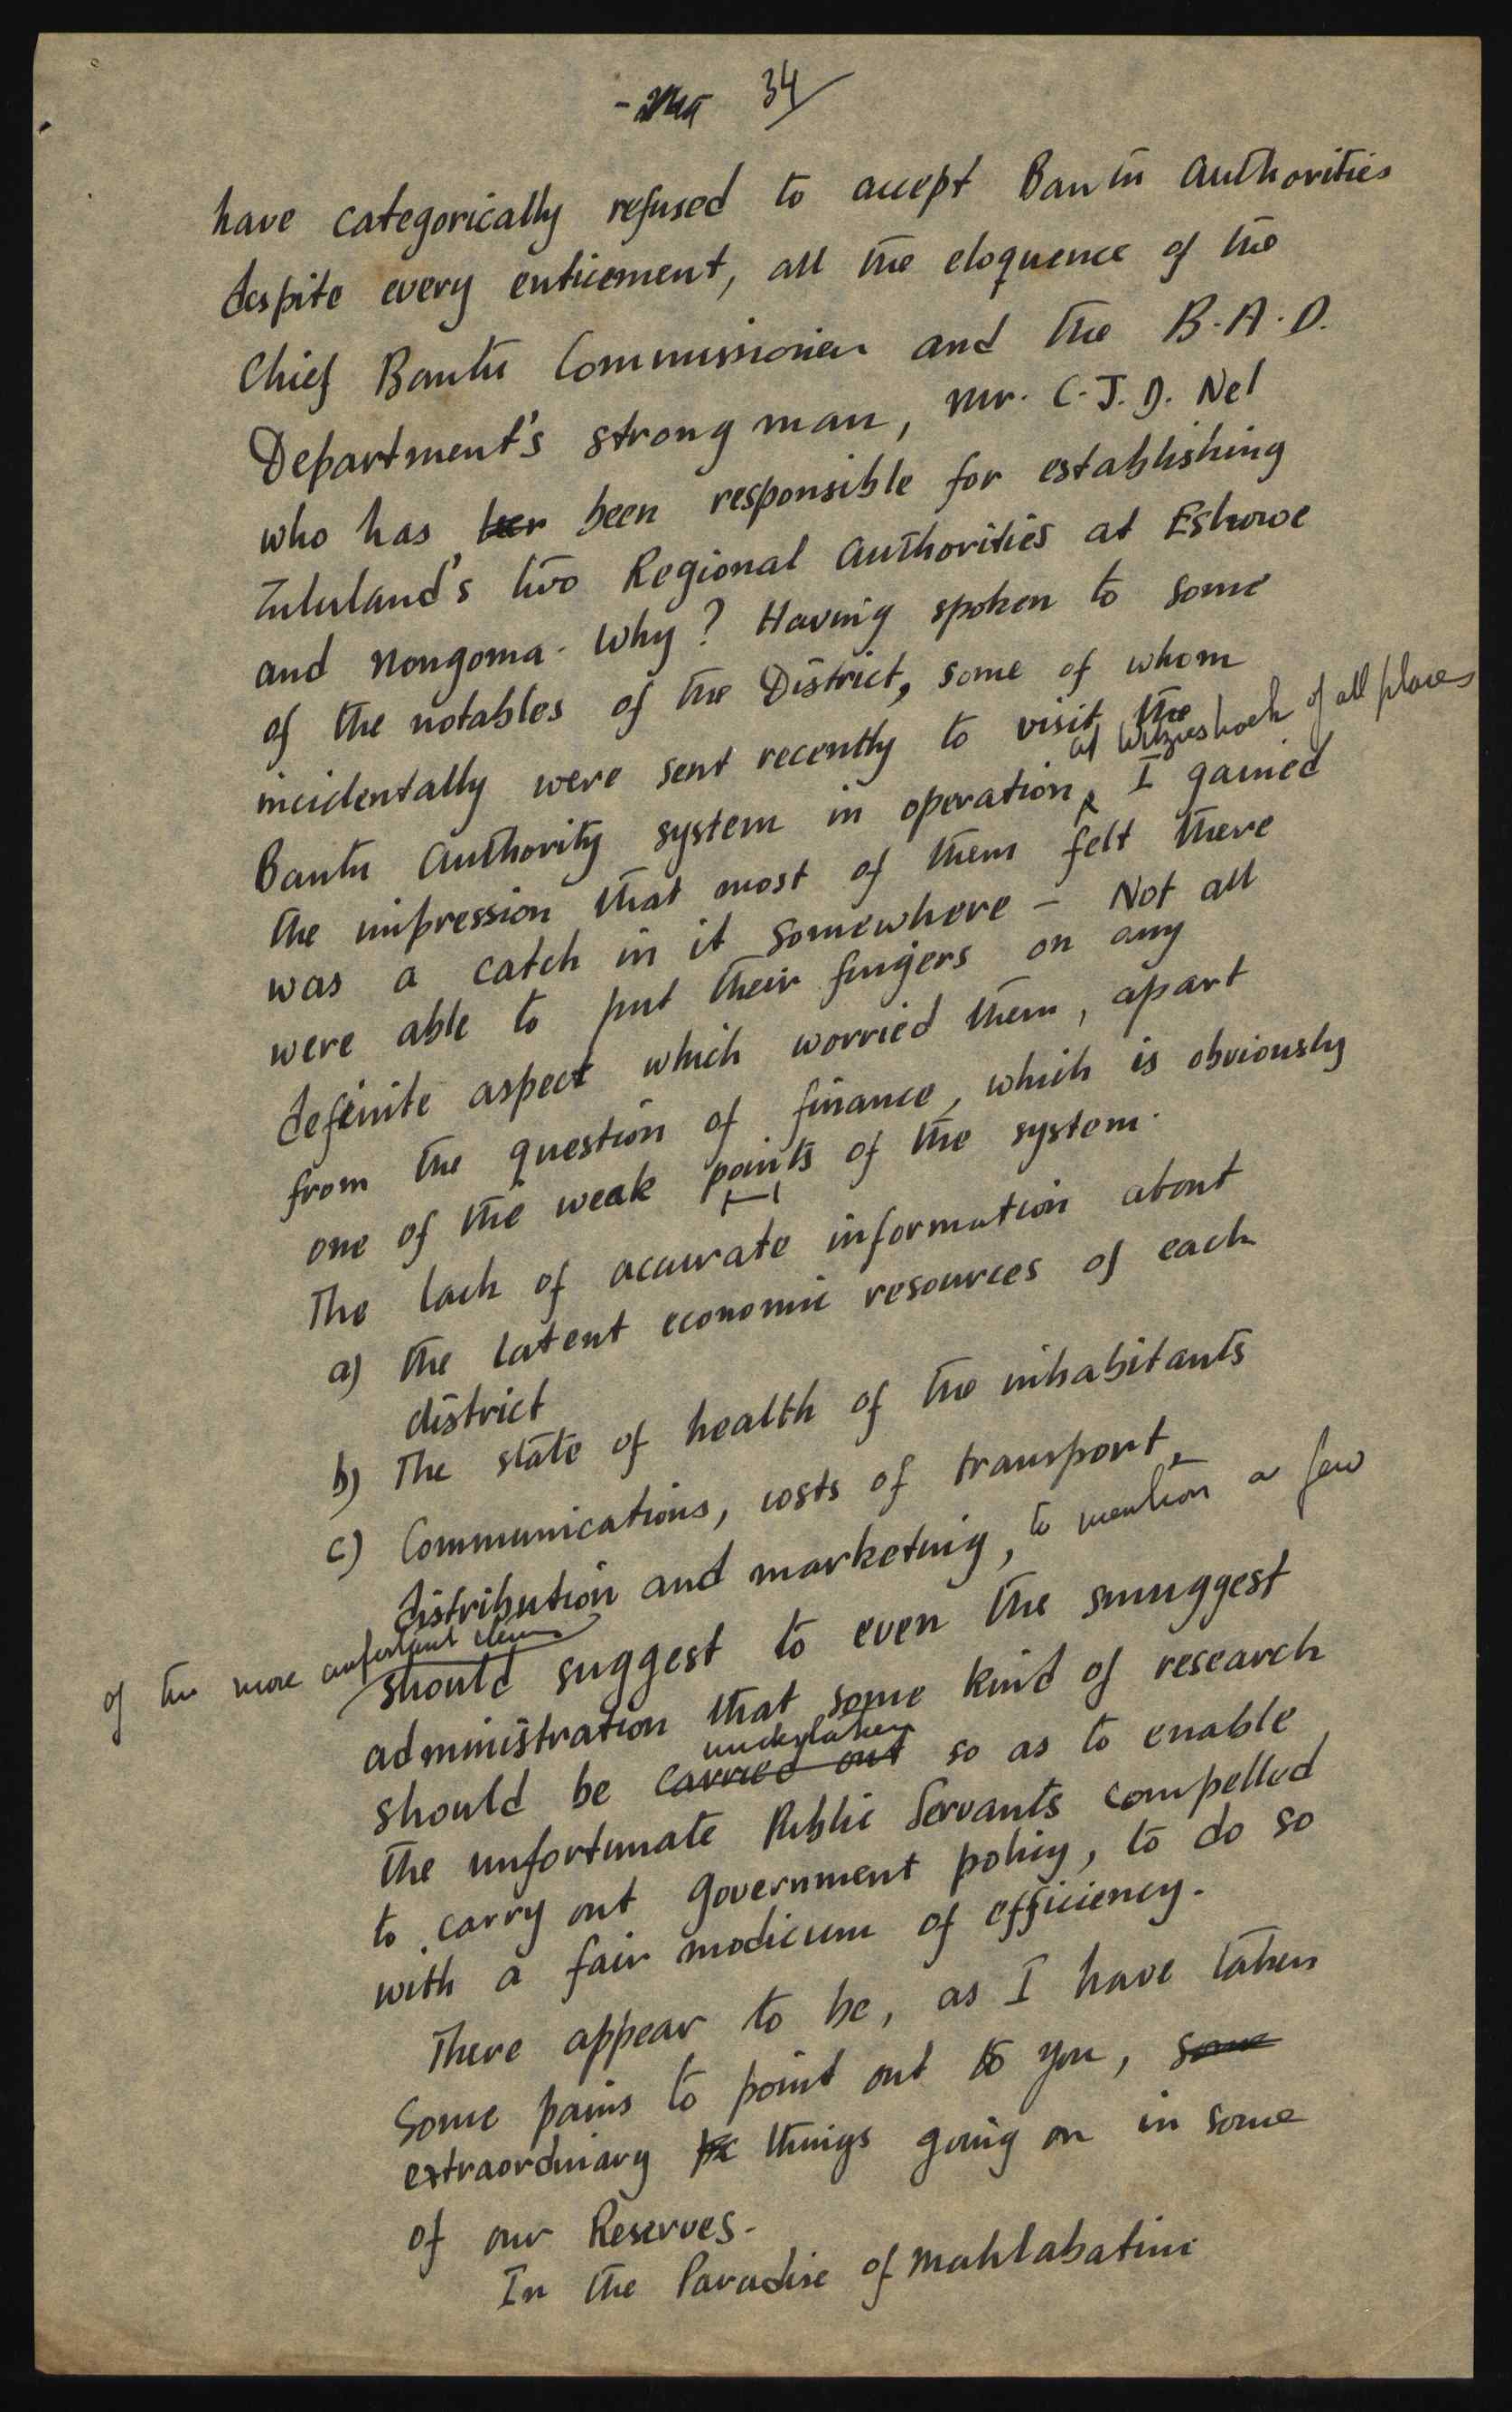 34
have categorically refused to accept Bantu Authorities
despite every enticement, all the eloquence of the
Chief Bantu Commissioner and the B.A.D.
Department's strong man, Mr. C.J.D. Nel
who has been responsible for establishing
Zululand's two Regional Authorities at Eshowe
and Nongoma. Why? Having spoken to some
of the notables of the District, some of whom
incidentally were sent recently to visit the
at Witzieshoek of all places
Bantu Authority system in operation, I gained
the impression that most of them felt there
was a catch in it somewhere - Not all
were able to put their fingers on any
definite aspect which worried them, apart
from the question of finance, which is obviously
one of the weak points of the system.
The lack of accurate information about
a) the latent economic resources of each
district
b) The state of health of the inhabitants
c) Communications, costs of transport,
distribution and marketing, to mention a few
of the more important items
should suggest to even the smuggest
administration that some kind of research
undertaken
should be carried out so as to enable
the unfortunate Public Servants compelled
to carry out Government policy, to do so
with a fair modicum of efficiency.
There appear to be, as I have taken
some pains to point out to you, some
extraordinary things going on in some
of our Reserves.
In the Paradise of Mahlabatini